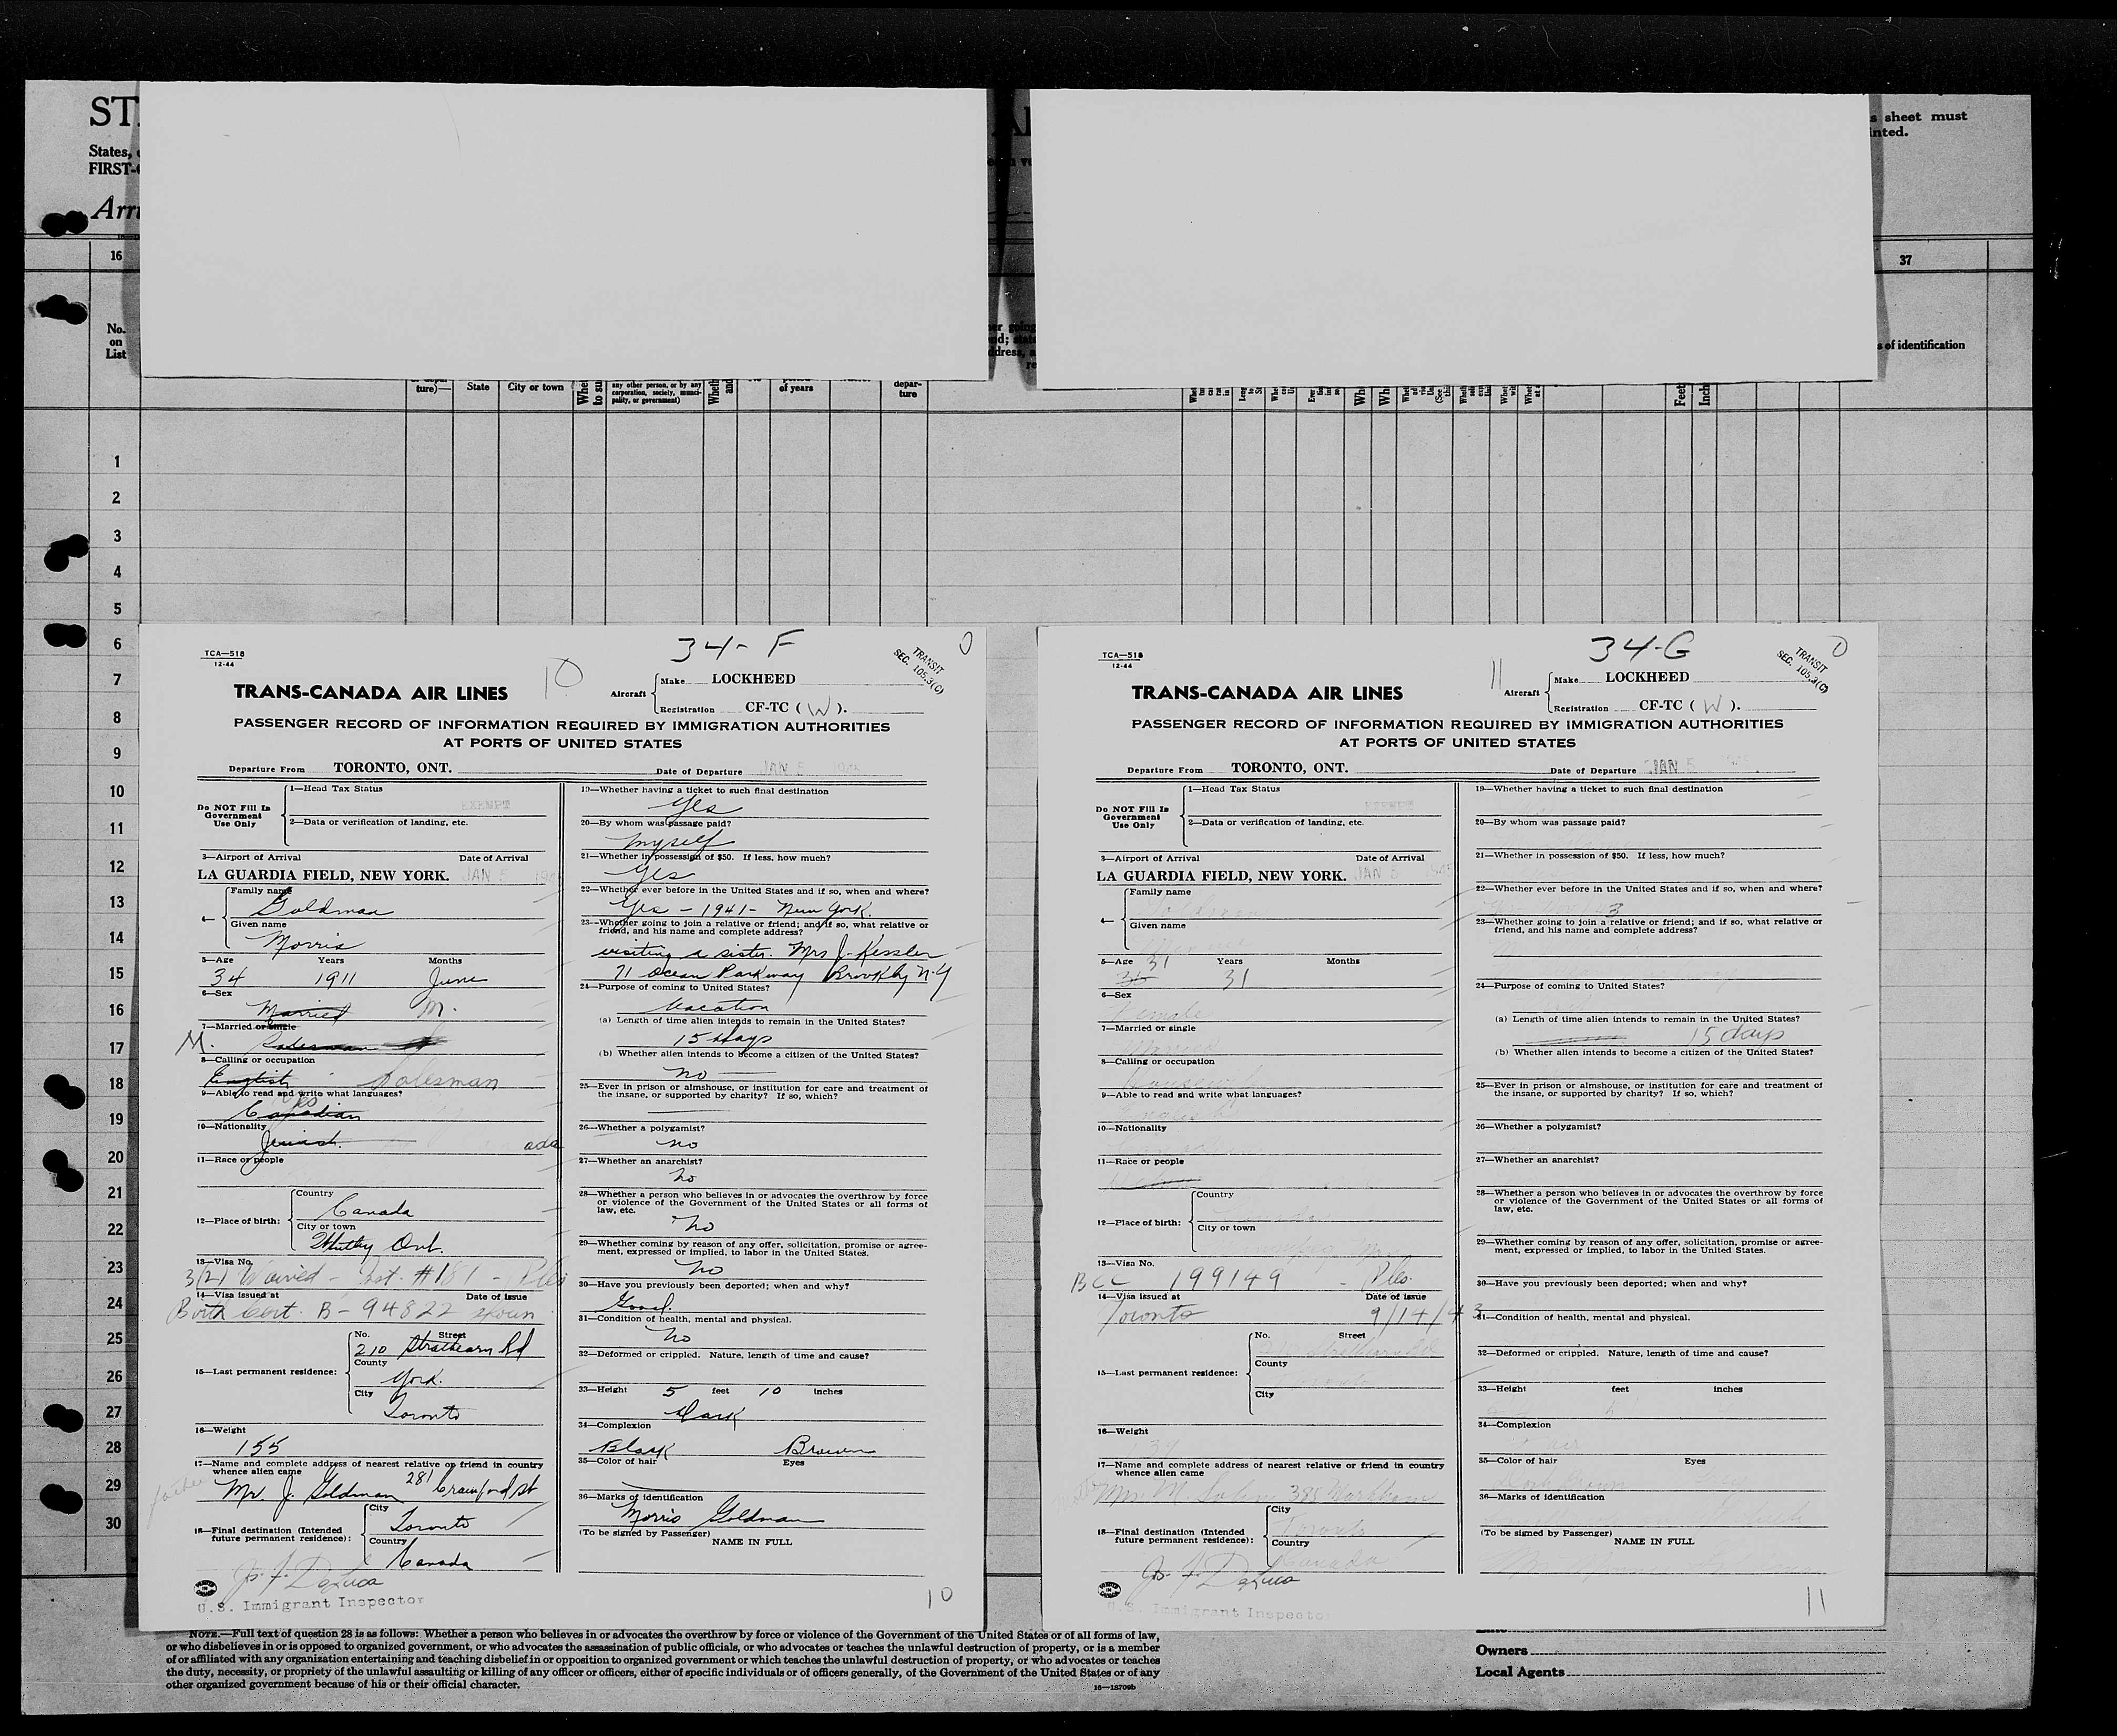 ST
States,
FIRST-
Arri
s sheet must
nted.
16
37
No.
on
List
s of identification
ture)—
State
City or town
any other person, or by any
corporation, society, munici-
pality, or government)
of years
depar-
ture
Feet
Inch
1
2
3
4
5
6
7
8
9
10
11
12
13
14
15
16
17
18
19
20
21
22
23
24
25
26
27
28
29
30
34-F
TCA—518
12-44
10
TRANSIT
SEC. 105.3(C)
TRANS-CANADA AIR LINES
Aircraft
Make LOCKHEED
Registration CF-TC ( W ).
PASSENGER RECORD OF INFORMATION REQUIRED BY IMMIGRATION AUTHORITIES
AT PORTS OF UNITED STATES
Departure From TORONTO, ONT. Date of Departure JAN 5
Do NOT Fill In
Government
Use Only
1—Head Tax Status
EXEMPT
2—Data or verification of landing, etc.
3—Airport of Arrival Date of Arrival
LA GUARDIA FIELD, NEW YORK. JAN 5
4—
Family name
Goldman
Given name
Morris
5—Age Years Months
34 1911 June
6—Sex
Married M.
7—Married or single
M. Salesman
8—Calling or occupation
English Salesman
9—Able to read and write what languages?
Yes
Canadian
10—Nationality
Jewish ada
11—Race or people
12—Place of birth:
Country
Canada
City or town
Whitby Ont.
13—Visa No.
3(2) Waived - Inst. #181
14—Visa issued at Date of issue
Birth Cert. B-94822 shown
15—Last permanent residence:
No. Street
210 Strathearn Rd
County
York.
City
Toronto
16—Weight
155
17—Name and complete address of nearest relative or friend in country
whence alien came
father Mr. J. Goldman 281 Crawford St
18—Final destination (Intended
future permanent residence):
City
Toronto
Country
Canada
DeLuca
U.S. Immigrant Inspector
19—Whether having a ticket to such final destination
Yes
20—By whom was passage paid?
Myself
21—Whether in possession of $50. If less, how much?
Yes
22—Whether ever before in the United States and if so, when and where?
Yes - 1941 - New York.
23—Whether going to join a relative or friend; and if so, what relative or
friend, and his name and complete address?
visiting a sister. Mrs J. Kessler
71 Ocean Parkway Brooklyn N.Y
24—Purpose of coming to United States?
Vacation
(a) Length of time alien intends to remain in the United States?
15 days
(b) Whether alien intends to become a citizen of the United States?
no
25—Ever in prison or almshouse, or institution for care and treatment of
the insane, or supported by charity? If so, which?
26—Whether a polygamist?
no
27—Whether an anarchist?
no
28—Whether a person who believes in or advocates the overthrow by force
or violence of the Government of the United States or all forms of
law, etc.
no
29—Whether coming by reason of any offer, solicitation, promise or agree-
ment, expressed or implied, to labor in the United States.
No
30—Have you previously been deported; when and why?
Good.
31—Condition of health, mental and physical.
No
32—Deformed or crippled. Nature, length of time and cause?
33—Height 5 feet 10 inches
Dark
34—Complexion
Black Brown
35—Color of hair Eyes
36—Marks of identification
Morris Goldman
(To be signed by Passenger)
NAME IN FULL
10
34-G
TCA—518
12-44
11
TRANSIT
SEC. 105.3(C)
TRANS-CANADA AIR LINES
Aircraft
Make LOCKHEED
Registration CF-TC ( W ).
PASSENGER RECORD OF INFORMATION REQUIRED BY IMMIGRATION AUTHORITIES
AT PORTS OF UNITED STATES
Departure From TORONTO, ONT. Date of Departure JAN 5
Do NOT Fill In
Government
Use Only
1—Head Tax Status
EXEMPT
2—Data or verification of landing, etc.
3—Airport of Arrival Date of Arrival
LA GUARDIA FIELD, NEW YORK. JAN 5 1945
4—
Family name
Given name
5—Age 31 Years Months
31
6—Sex
Female
7—Married or single
Married
8—Calling or occupation
Housewife
9—Able to read and write what languages?
English
10—Nationality
11—Race or people
12—Place of birth:
Country
Canada
City or town
13—Visa No.
BCC 199149
14—Visa issued at Date of issue
Toronto 9/14/43
15—Last permanent residence:
No. Street
County
City
16—Weight
17—Name and complete address of nearest relative or friend in country
whence alien came
385 Markham
18—Final destination (Intended
future permanent residence):
City
Toronto
Country
Canada
DeLuca
U.S. Immigrant Inspector
19—Whether having a ticket to such final destination
20—By whom was passage paid?
21—Whether in possession of $50. If less, how much?
22—Whether ever before in the United States and if so, when and where?
23—Whether going to join a relative or friend; and if so, what relative or
friend, and his name and complete address?
24—Purpose of coming to United States?
(a) Length of time alien intends to remain in the United States?
15 days
(b) Whether alien intends to become a citizen of the United States?
25—Ever in prison or almshouse, or institution for care and treatment of
the insane, or supported by charity? If so, which?
26—Whether a polygamist?
27—Whether an anarchist?
28—Whether a person who believes in or advocates the overthrow by force
or violence of the Government of the United States or all forms of
law, etc.
29—Whether coming by reason of any offer, solicitation, promise or agree-
ment, expressed or implied, to labor in the United States.
30—Have you previously been deported; when and why?
31—Condition of health, mental and physical.
32—Deformed or crippled. Nature, length of time and cause?
33—Height feet inches
34—Complexion
35—Color of hair Eyes
36—Marks of identification
(To be signed by Passenger)
NAME IN FULL
11
NOTE.—Full text of question 28 is as follows: Whether a person who believes in or advocates the overthrow by force or violence of the Government of the United States or of all forms of law,
or who disbelieves in or is opposed to organized government, or who advocates the assassination of public officials, or who advocates or teaches the unlawful destruction of property, or is a member
of or affiliated with any organization entertaining and teaching disbelief in or opposition to organized government or which teaches the unlawful destruction of property, or who advocates or teaches
the duty, necessity, or propriety of the unlawful assaulting or killing of any officer or officers, either of specific individuals or of officers generally, of the Government of the United States or of any
other organized government because of his or their official character.
16—18709b
Owners
Local Agents